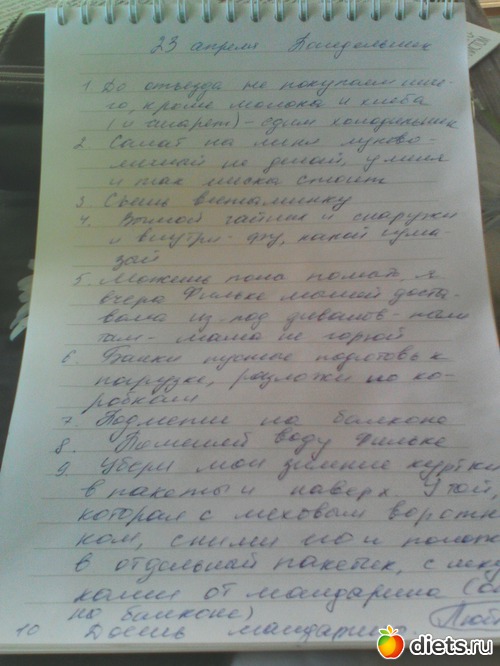 23 апреля Понедельник
1. До отъезда не покупаем ниче-
го, кроме молока и хлеба
(и сигарет) - едим холодильник
2. Салат на меня луково-
яичный не делай, у меня
и так миска стоит
3. Съешь витаминку
4. Вымой чайник и снаружи
и внутри - фу, какой чума-
зой
5. Можешь пока я
вчера Фильке мышей доста-
вала из-под дивана
там - мама не горюй
6. Банки пустые подготовь к
погрузке, разложи по ко-
робкам
7. Подмети на балконе
8. Поменяй воду Фильке
9. Убери мои зимние куртки
в пакеты и наверх. У той,
которая с меховым воротн
ком, сними его и полож
в отдельный пакетик, с меш
ками от мандарина
на балконе)
10 Доешь мандарин
diets.ru